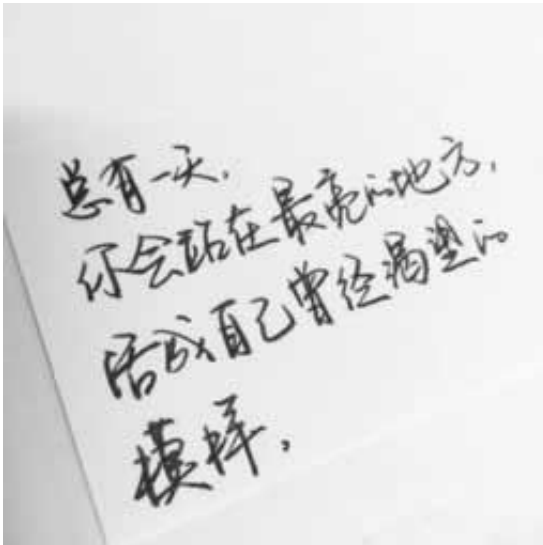 总有一天.
你会站在最亮的地方,
活成自己曾经渴望的
模样.